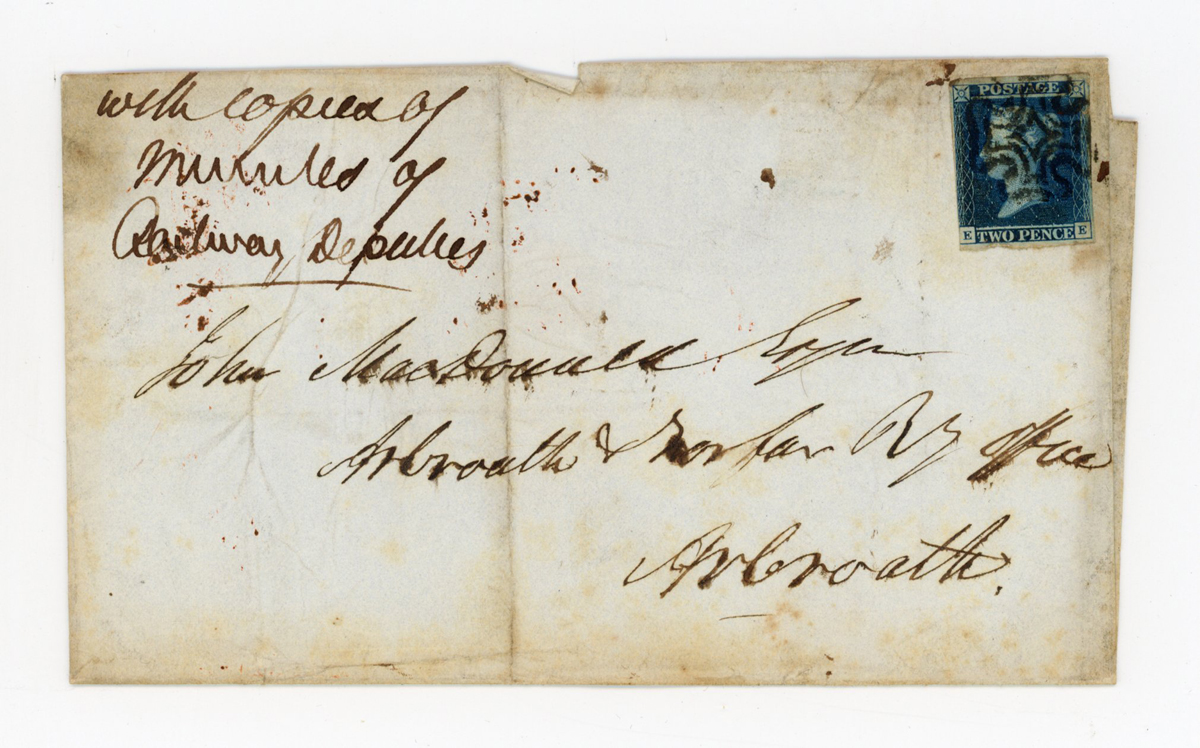 with copies of
Minutes of
Railway Deputies
POSTAGE
E TWO PENCE E
John MacDonald Esqr
Arbroath & Forfar Ry office
Arbroath.